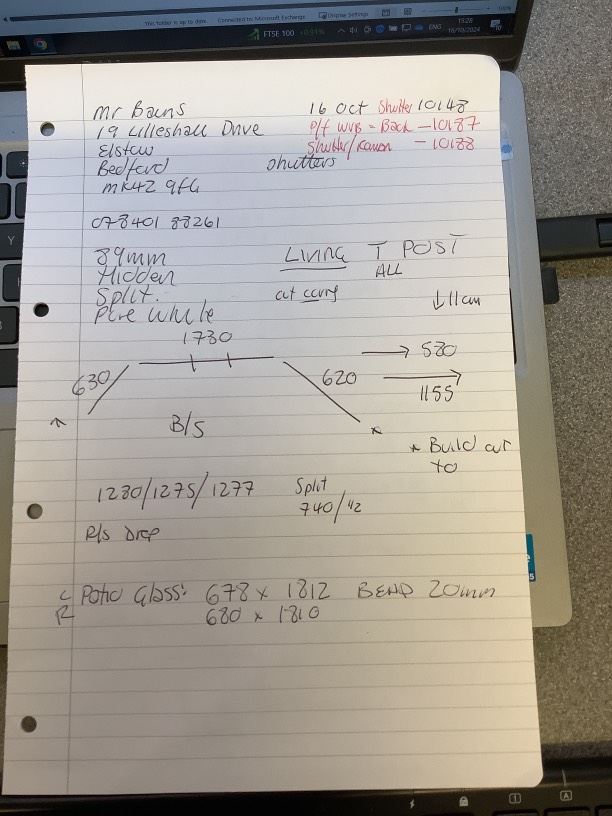 This folder is up to date. Connected to: Microsoft Exchange Display Settings
FTSE 100 +0.91% ENG 15:28
16/10/2024
mr Bains 16 Oct Shutter 10148
19 Lilleshall Drive P/f WVB = Back - 10187
Elstow Shutter/ - 10188
Bedford shutters
mk42 9FG
078401 88261
89mm LIVING T POST
Hidden ALL
Split. cut ↓11cm
Pure White
1730
630 620 → 520
→ 1155
B/S
* Build out
to
1280/1275/1277 Split
740/42
R/s Drop
L Patio Glass: 678 x 1812 BEAD 20mm
R 680 x 1810